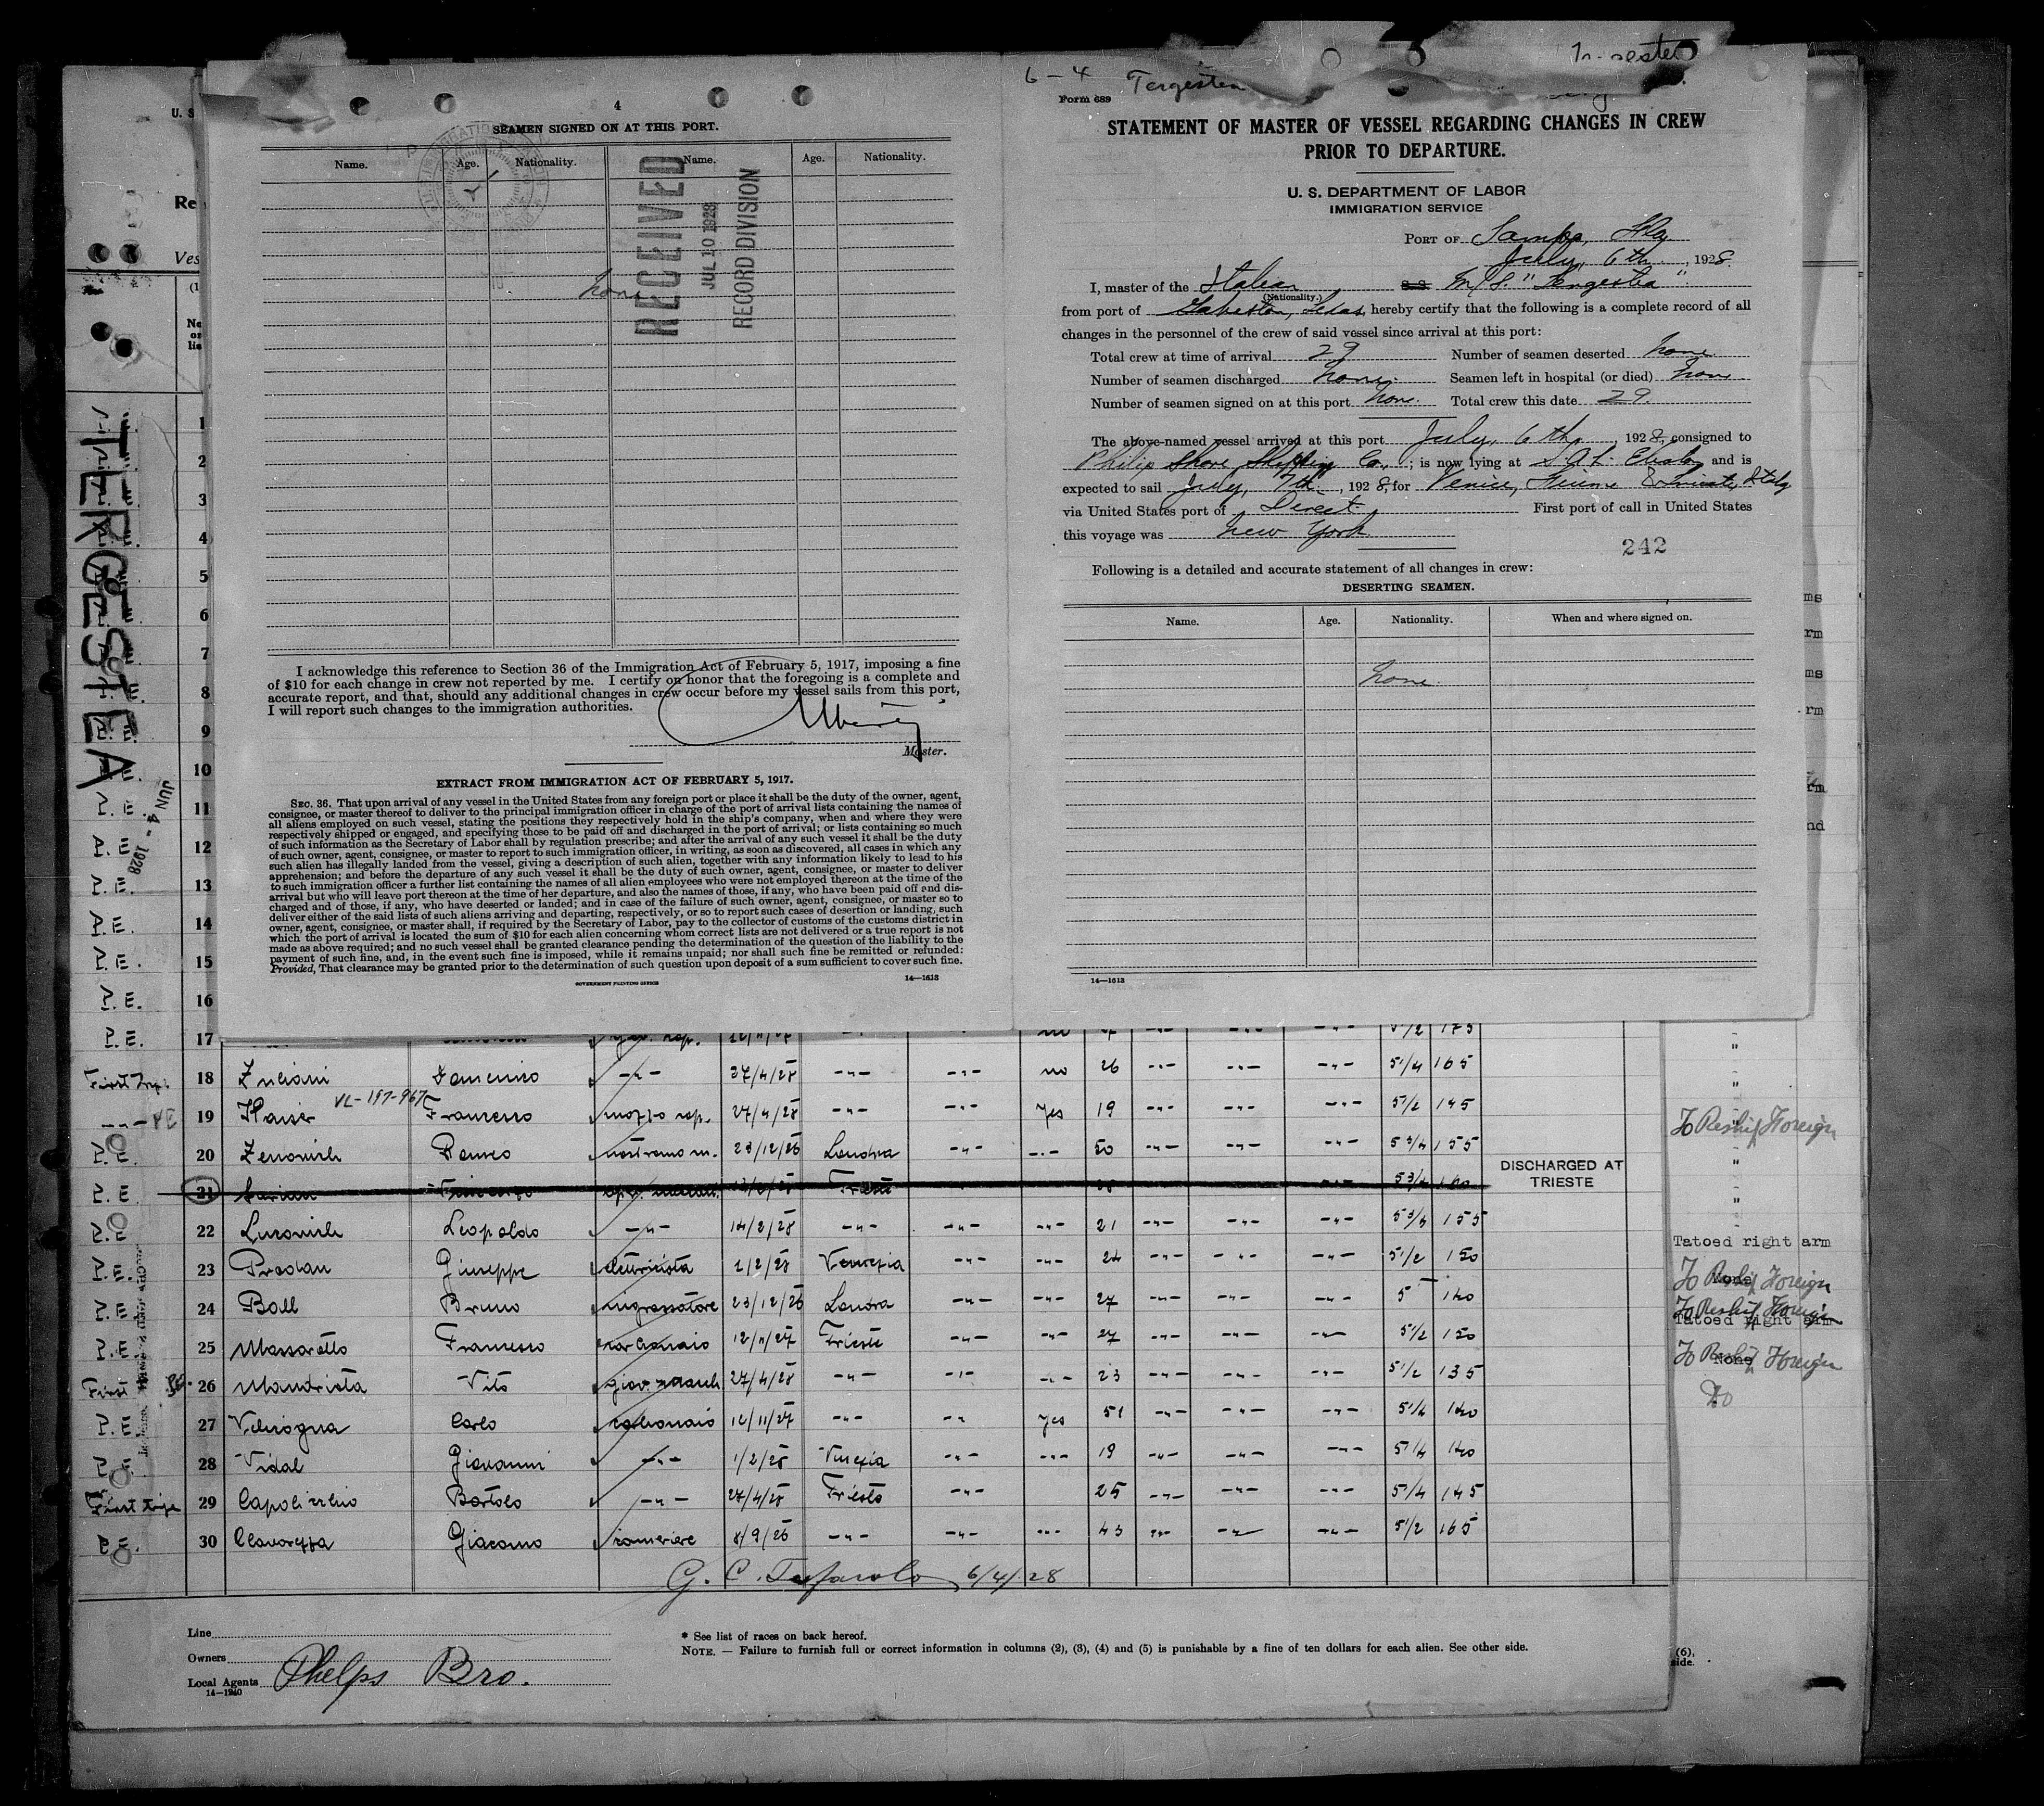 4
SEAMEN SIGNED ON AT THIS PORT.
Name. Age. Nationality. Name. Age. Nationality.
RECEIVED
JUL 10 1928
RECORD DIVISION
None
I acknowledge this reference to Section 36 of the Immigration Act of February 5, 1917, imposing a fine
of $10 for each change in crew not reported by me. I certify on honor that the foregoing is a complete and
accurate report, and that, should any additional changes in crew occur before my vessel sails from this port,
I will report such changes to the immigration authorities.
Master.
EXTRACT FROM IMMIGRATION ACT OF FEBRUARY 5, 1917.
SEC. 36. That upon arrival of any vessel in the United States from any foreign port or place it shall be the duty of the owner, agent,
consignee, or master thereof to deliver to the principal immigration officer in charge of the port of arrival lists containing the names of
all aliens employed on such vessel, stating the positions they respectively hold in the ship's company, when and where they were
respectively shipped or engaged, and specifying those to be paid off and discharged in the port of arrival; or lists containing so much
of such information as the Secretary of Labor shall by regulation prescribe; and after the arrival of any such vessel it shall be the duty
of such owner, agent, consignee, or master to report to such immigration officer, in writing, as soon as discovered, all cases in which any
such alien has illegally landed from the vessel, giving a description of such alien, together with any information likely to lead to his
apprehension; and before the departure of any such vessel it shall be the duty of such owner, agent, consignee, or master to deliver
to such immigration officer a further list containing the names of all alien employees who were not employed thereon at the time of the
arrival but who will leave port thereon at the time of her departure, and also the names of those, if any, who have been paid off and dis-
charged and of those, if any, who have deserted or landed; and in case of the failure of such owner, agent, consignee, or master so to
deliver either of the said lists of such aliens arriving and departing, respectively, or so to report such cases of desertion or landing, such
owner, agent, consignee, or master shall, if required by the Secretary of Labor, pay to the collector of customs of the customs district in
which the port of arrival is located the sum of $10 for each alien concerning whom correct lists are not delivered or a true report is not
made as above required; and no such vessel shall be granted clearance pending the determination of the question of the liability to the
payment of such fine, and, in the event such fine is imposed, while it remains unpaid; nor shall such fine be remitted or refunded:
Provided, That clearance may be granted prior to the determination of such question upon deposit of a sum sufficient to cover such fine.
GOVERNMENT PRINTING OFFICE 14—1613
6-4 Tergestea
Form 689
STATEMENT OF MASTER OF VESSEL REGARDING CHANGES IN CREW
PRIOR TO DEPARTURE.
U. S. DEPARTMENT OF LABOR
IMMIGRATION SERVICE
PORT OF Tampa, Fla
July, 6th, 1928.
I, master of the Italian M/S. "Tergestea"
(Nationality.)
from port of Galveston, Texas, hereby certify that the following is a complete record of all
changes in the personnel of the crew of said vessel since arrival at this port:
Total crew at time of arrival 29 Number of seamen deserted None
Number of seamen discharged None. Seamen left in hospital (or died) None
Number of seamen signed on at this port None. Total crew this date 29.
The above-named vessel arrived at this port July, 6th, 1928, consigned to
Philip Shore Shipping Co., ; is now lying at S.A.L. and is
expected to sail July, 7th, 1928, for Venice, Fiume & Trieste, Italy
via United States port of Direct. First port of call in United States
this voyage was New York
242
Following is a detailed and accurate statement of all changes in crew:
DESERTING SEAMEN.
Name. Age. Nationality. When and where signed on.
None.
14—1613
TERGESTEA
JUN 4 - 1928
1
2
3
4
5
6
7
8
9
10
P.E. 11
P.E. 12
P.E. 13
P.E. 14
P.E. 15
P.E. 16
P.E. 17
First Trip 18 Zuliani Domenico -"- 27/4/28 -"- -"- no 26 -"- -"- -"- 5 1/4 165
-"- PE 19 VL-197-967 Francesco mozzo 27/4/28 -"- -"- yes 19 -"- -"- -"- 5 1/2 145 To Reship Foreign
P.E. 20 Romeo nostromo m. 23/12/26 Londra -"- -"- 50 -"- -"- -"- 5 3/4 155
P.E. 21 Trieste -"- 5 3/4 160 DISCHARGED AT TRIESTE
P.E. 22 Leopoldo -"- 14/2/28 -"- -"- -"- 21 -"- -"- -"- 5 3/4 155
Tatoed right arm
P.E. 23 Prodan Giuseppe elettricista 1/2/28 Venezia -"- -"- 24 -"- -"- -"- 5 1/2 150 To Reship Foreign
P.E. 24 Boll Bruno ingrassatore 23/12/26 Londra -"- -"- 27 -"- -"- -"- 5 140 To Reship Foreign
Tatoed right arm
P.E. 25 Massarotto Francesco carbonaio 12/11/27 Trieste -"- -"- 27 -"- -"- -"- 5 1/2 150 None To Reship Foreign
First 26 Vito 27/4/28 -"- -"- -"- 23 -"- -"- -"- 5 1/2 135 Do
P.E. 27 Carlo carbonaio 12/11/27 -"- -"- yes 51 -"- -"- -"- 5 1/4 140
P.E. 28 Vidal Giovanni -"- 1/2/28 Venezia -"- -"- 19 -"- -"- -"- 5 1/4 140
First trip 29 Capolicchio Bortolo -"- 27/4/28 Trieste -"- 25 -"- -"- -"- 5 1/4 145
P.E. 30 Giacomo cameriere 8/9/26 -"- -"- -"- 43 -"- -"- -"- 5 1/2 165
6/4/28
Line
Owners
Local Agents Phelps Bro.
14—1240
* See list of races on back hereof.
NOTE. — Failure to furnish full or correct information in columns (2), (3), (4) and (5) is punishable by a fine of ten dollars for each alien. See other side.
(6),
side.